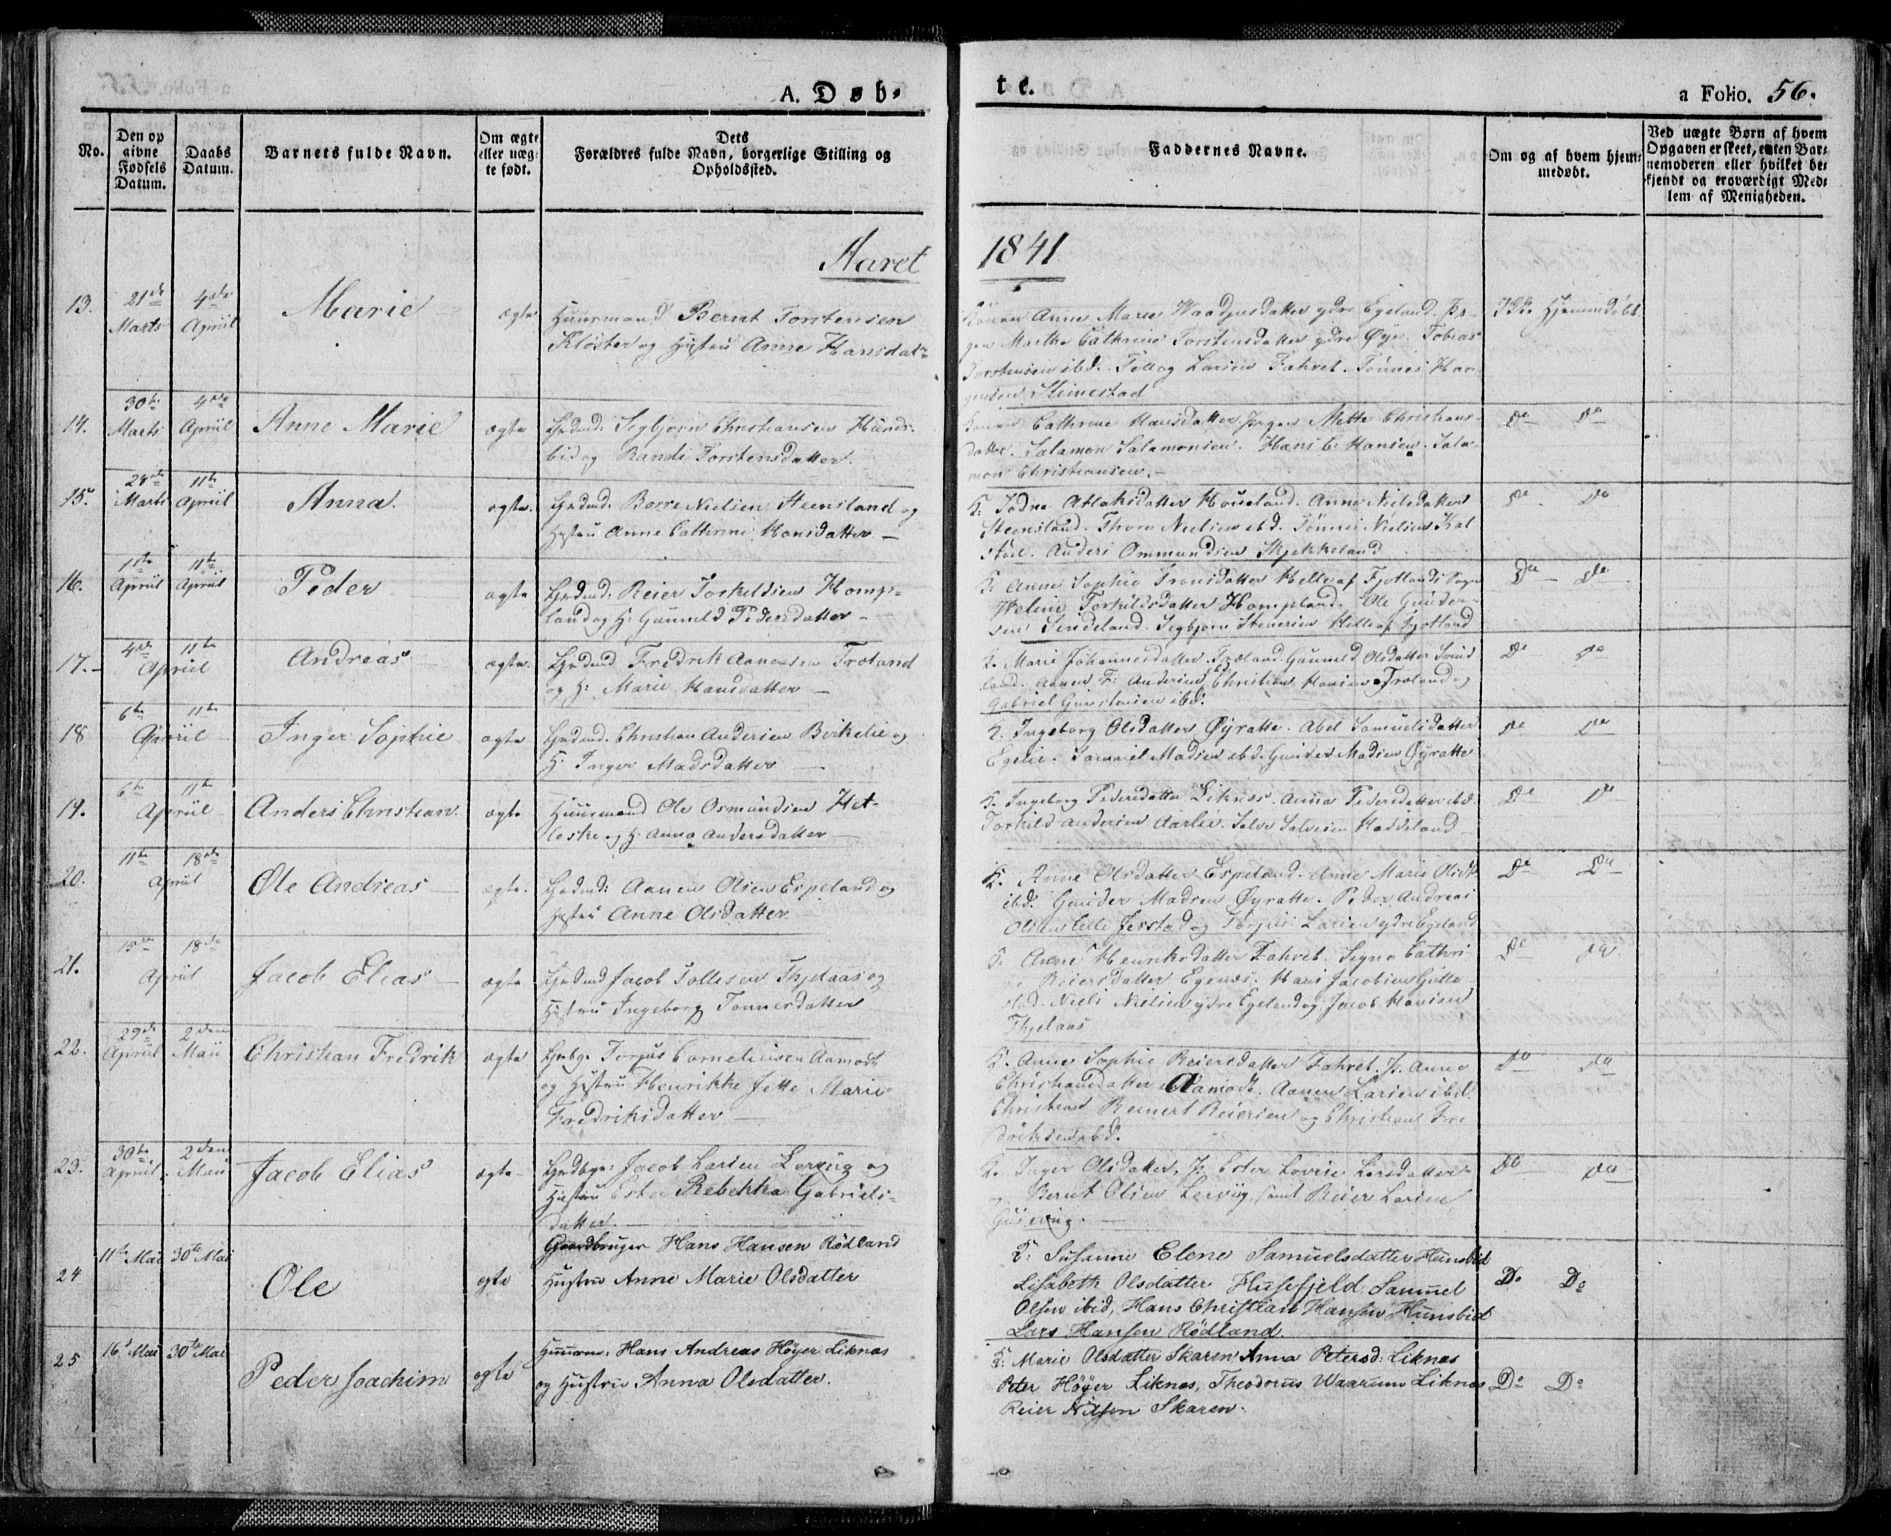 A. Døb-
te.
a Folio. 56.
No.
Den op
givne
Fødsels
Datum.
Daabs
Datum.
Barnets fulde Navn.
Om ægte
eller uæg-
te født.
Dets
Forældres fulde Navn, borgerlige Stilling og
Opholdssted.
Faddernes Navne.
Om og af hvem hjem-
medøbt.
Ved uægte Børn af hvem
Opgaven er skeet, enten Bar-
nemoderen eller hvilket be-
kjendt og troværdigt Med-
lem af Menigheden.
Aaret 1841
13. 21de Marts 4de April Marie ægte
Huusmand Bernt Torstensen
Kløster og Hustru Anne Hansdat-
Konen Anne Marie ydre Egeland. Pi-
gen Marthe Cathrine Torstensdatter ydre Øye. Tobias
Torstensen ibd. Larsen Fahret. Tønnes Haa-
Stimestad
Ikke Hjemmedøbt
14. 30te Marts 4de April Anne Marie ægte
Sigbjørn Christiansen Huns-
bid og Randi Torstensdatter.
Konen Cathrine Hansdatter, Pigen Mette Christians-
datter. Salamon Salamonsen. Hans C. Hansen. Sala-
mon Christiansen.
Do Do
15. Marts 11te April Anna. ægte.
Børre Nielsen Steensland og
Hustru Anne Cathrine Hansdatter
K. Aslaksdatter Houeland. Anna Nielsdatter
Steensland. Thore Nielsen ibd. Tønnes Nielsen Kal-
Anders Ommundsen Skjekkeland
Do Do
16. 1ste April 11te April Peder ægte
Reier Torkildsen Homp-
land og H: Gunnild Pedersdatter
K: Anne Sophie Tronsdatter Helle af Fjotlands Sogn
Torkildsdatter Hompland. Ole Gunder-
sen Sindeland. Sigbjørn Helle af Fjotland
Do Do
17. 4de 11te April Andreas ægte.
Fredrik Aanensen Træland
og H: Marie Hansdatter
K. Marie Johannesdatter Træland Gunnild Olsdatter Svind-
land. Aanen F. Andersen ibd Christian Hansen Træland og
Gabriel Gunstensen ibd.
Do Do
18 6te 11te April Inger Sophie ægte
Christian Andersen Birkelie og
H: Inger Madsdatter
K. Ingeborg Olsdatter Øyratte. Abel Samuelsdatter
Egelie. Samuel Madsen ibd. Gunder Madsen Øyratte
Do Do
19. 6te 11te April Anders Christian. ægte
Huusmand Ole Osmundsen Het-
og H: Anna Andersdatter
K. Ingeborg Pedersdatter Liknes. Anna Pedersdatter ibd.
Torkild Andersen Aarlie. Salve Salvesen Haddeland
Do Do
20. 11te 18de April Ole Andreas ægte.
Aanen Olsen Espeland og
Hustru Anne Olsdatter
K. Anne Olsdatter Espeland. Anne Marie Olsdt
ibd. Gunder Madsen Øyratte. Peder Andreas
Olsen Lille Jerstad og Torjus Larsen ydre Egeland
Do Do
21. 18de April Jacob Elias ægte
Jacob Tollefsen Thjelaas og
Hustru Ingeborg Tønnesdatter
K. Anne Henriksdatter Fahret. Signe Cathri-
ne Reiersdatter Egenes. Hans Jacobsen
Niels Nielsen ydre Egeland og Jacob Hansen
Thjelaas
Do Do
22. 29de April 2den Mai Christian Fredrik ægte
Torjus Corneliusen Aamodt
og Hustru Henrikke Jette Marie
Fredriksdatter
K. Anne Sophie Reiersdatter Fahret. P. Anne
Christiansdatter Aamodt. Aanen Larsen ibd.
Christian Reinert Reiersen og Christian Fre-
driksen ibd.
Do Do
23. 30te April 2den Mai Jacob Elias ægte
Jacob Larsen Lervig og
Hustru Ester Rebekka Gabriels-
datter.
K. Inger Olsdatter, P. Ester Lovise Larsdatter
Bernt Olsen Lervig, samt Reier Larsen
Do Do
24 11te Mai 30te Mai Ole ægte
Gaardbruger Hans Hansen Rødland
Hustru Anne Marie Olsdatter
K: Susanne Elene Samuelsdatter Hunsbid
Lisabeth Olsdatter Husefjeld, Samuel
Olsen ibid, Hans Christian Hansen Hunsbid
Lars Hansen Rødland.
Do Do
25 16d Mai 30te Mai Peder Joachim ægte
Huusm: Hans Andreas Höyer Liknas
og Hustru Anna Olsdatter.
K: Marie Olsdatter Skaren Anna Petersd: Liknes
Peter Höyer Liknes, Theodorus Waarum Liknes
Reier Nilsen Skaren.
Do Do